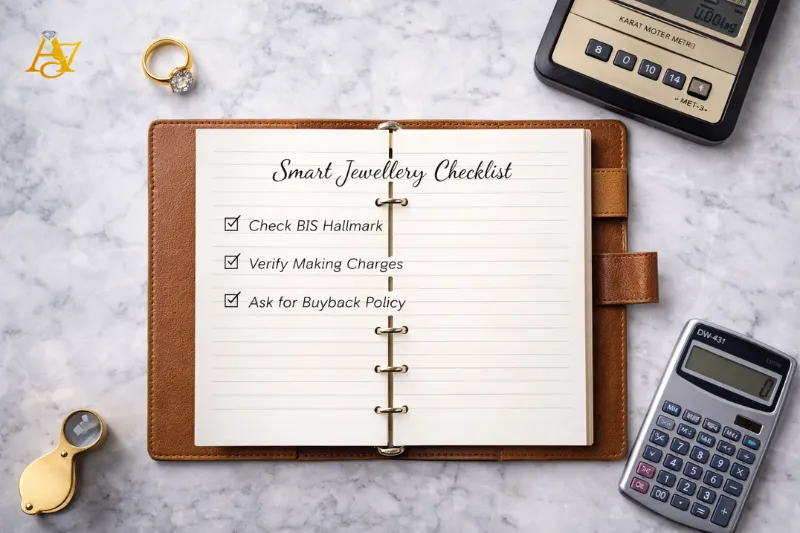 AJ
0.00
KARAT MOTER METRS
8 0 10 14
MET-3
Smart Jewellery Checklist
Check BIS Hallmark
Verify Making Charges
Ask for Buyback Policy
DW-431
0
7 8 9
4 5 6
1 2 3
00 0